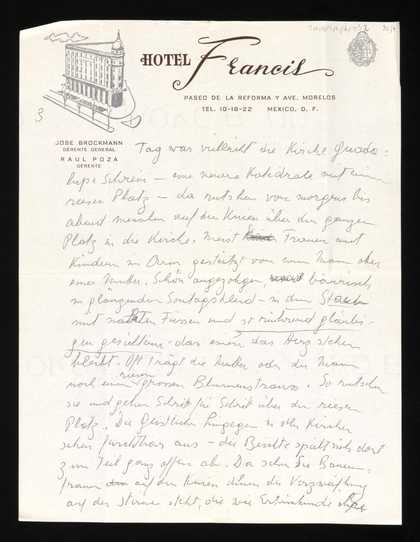 HOTEL Francis
PASEO DE LA REFORMA Y AVE. MORELOS
TEL. 10-18-22 MEXICO, D. F.
3
JOSE BROCKMANN
GERENTE GENERAL
RAUL POZA
GERENTE
Tag war vielleicht die Kirche Guada-
lupe Schrein – eine neuere Kathedrale mit einem
riesen Platz – da rutschen von morgens bis
abend menschen auf den Knien über den ganzen
Platz in die Kirche. Meist Frauen mit
Kindern im Arm gestützt von einem Mann oder
einer Mutter. Schön angezogen, bäurisch
in glänzenden Sontagskleid – in dem Staub
mit nackten Füssen und so rührend gläubi-
gen gesichtern – das einem das Herz stehen
bleibt. Oft trägt die Mutter oder der Mann
noch einen riesen grossen Blumenstrauss. So rutschen
sie und gehen Schritt für Schritt über den riesen
Platz. Die Geistlichen hingegen in allen Kirchen
sehen furchtbar aus – die Beichte spielt sich dort
zum Teil ganz offen ab. Da sehn Sie Bauern-
frauen auf den Knien denen die Verzweiflung
auf der Stirne steht, die wie Ertrinkende